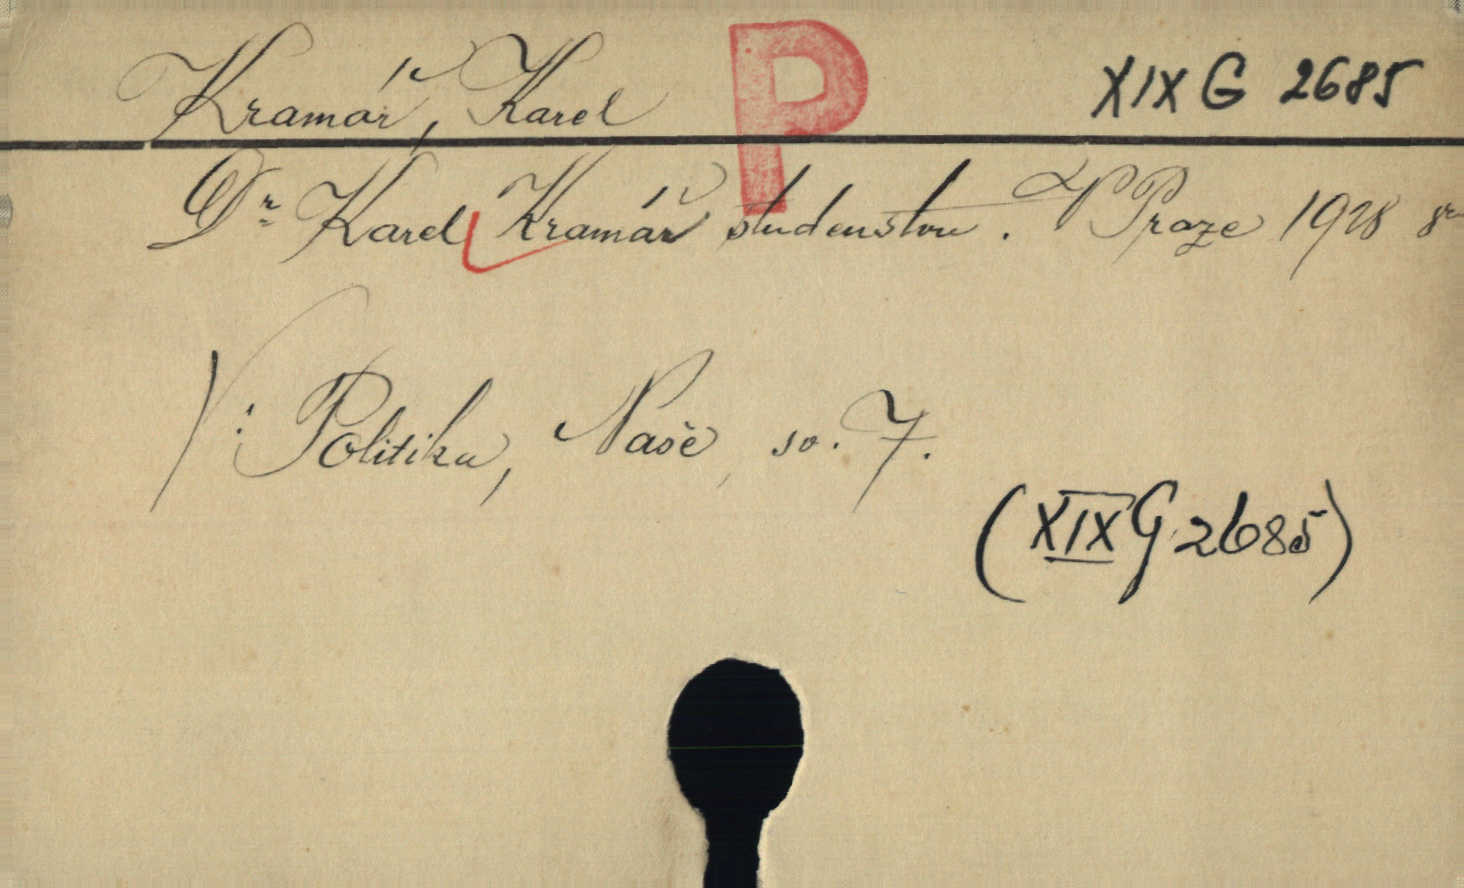 Kramář, Karel P XIX G 2685
Dr Karel Kramář studenstvu. V Praze 1928 8°
V: Politika, Naše, sv. 7.
(XIX G 2685)